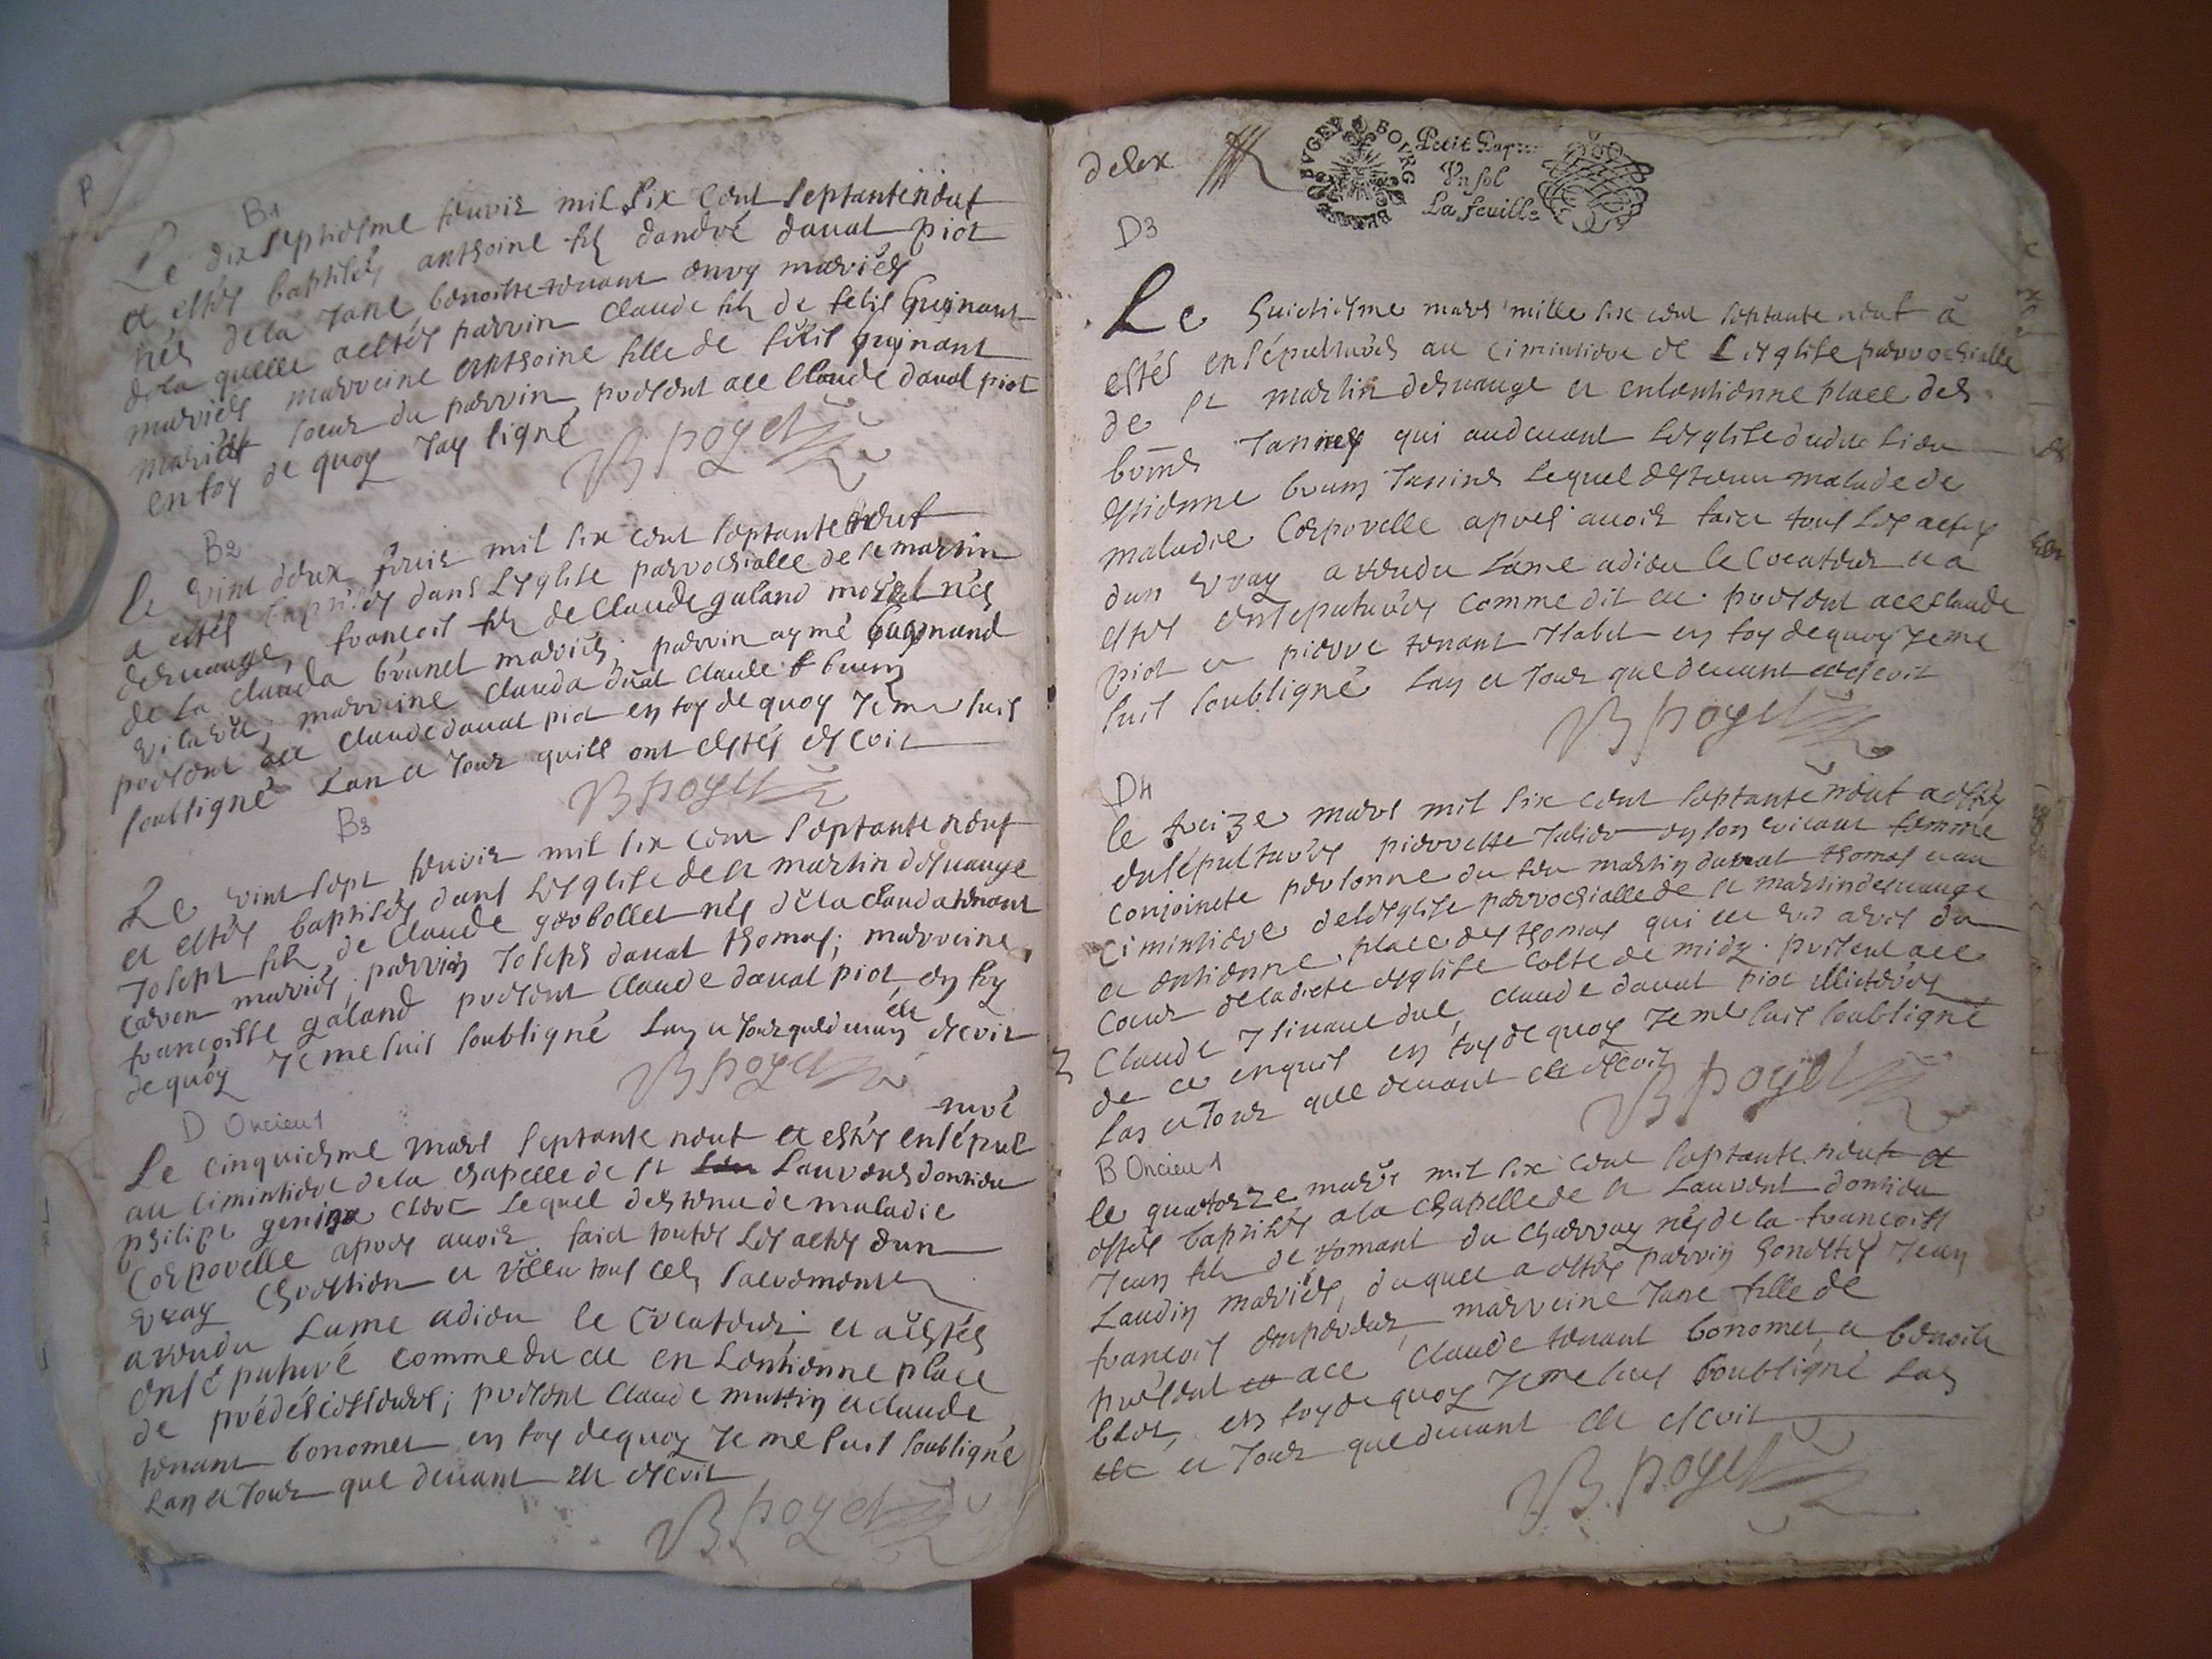 B1
Le dix septiesme feuvie mil six cent septante neuf
a estés baptisés anthoine filz dandré daual piot
nés de la Jane benoitte tenant envy mariés
de la quelle aestés parrin Claude filz de felis guinant
mariés marreine Anthoine fille de felis guinant
mariés soeur du parrin, presént ace Claude daual piot
en foy de quoy Jay signé
B poyet
B2
le vint deux feuvie mil six cent septante neuf
a estés baptisés dans L'eglise parrochialle de st martin
desuauge, françois filz de Claude galand nés
de la Clauda brunet mariés; parrin aymé
marreine Clauda Claude brun
presént ace Claude daual piot en foy de quoy Je me suis
soubsigné Lan et Jour quills ont estés escrit
B poyet
B3
Le vint sept feuvie mil six cent septante neuf
a estés baptisés dans L'eglise de st martin desuauge
Joseph filz de Claude gerbollet nés de la Clauda tenant
carron mariés; parrin Joseph daual thomas; marreine
françoisse galand presént Claude daual piot en foy
de quoy Je me suis soubsigné Lan et Jour quedeuan est escrit
B poyet
D Oncieu 1
Le cinquiesme mars septante neuf et estés ensépul
-turé
au cimintiere de la chapelle de st Laurens doncieu
philipe clerc Lequel destenu de maladie
Corporelle apres auoir faict toutes Les actes dun
vray Chrestien et receu tous ces sacrements
a rendu Lame a dieu le Createur et a estés
ensépulturé comme du en Lentienne place
de prédésiesseurs; presént Claude et claude
tenant bonomet en foy dequoy Je me suis soubsigné
Lan et Jour que deuant est escrit
B poyet
Petit Papier
Vn sol
La feuille
BOVRG
D3
Le huictiesme mars mille six cent septante neuf à
estés ensépulturés au cimintiere de L'eglise parrochialle
de st martin desuauge et en Lentienne place des
Janines qui audeuant L'eglise dudit Lieu
estienne brun Janines Lequel destenu malade de
maladie Corporelle apres auoir faict tous Les actes
dun vray a rendu Lame a dieu le Createur et a
estés ensepulturés comme dit est. presént ace claude
piot et pierre tenant en foy dequoy Je me
suis soubsigné Lan et Jour que deuant est escrit
B poyet
D4
le treize mars mil six cent septante neuf a estés
ensépulturés pierrette en son viuant femme
conjoincte personne du feu martin daual thomas et au
cimintiere de L'eglise parrochialle de st martin desuauge
et entienne place des thomas qui est
Coeur de ladicte eglise Coste de midy. presént ace
Claude Claude daual piot illicterés
de ce enquis en foy de quoy Je me suis soubsigné
Lan et Jour que deuant est escrit
B poyet
B Oncieu 1
le quatorze mars mil six cent septante neuf a
estés baptisés a la Chapelle de st Laurent doncieu
Jean filz de romant du Charroy nés de la françoise
Laudin mariés, duquel a estés parrin honestes Jean
françois marreine Jane fille de
presént ace Claude tenant bonomet et benoit
blot, en foy de quoy Je me suis soubsigné Lan
et Jour que deuant est escrit
B. poyet